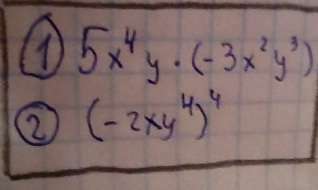 ① 5x⁴y · (-3x²y³)
② (-2xy⁴)⁴